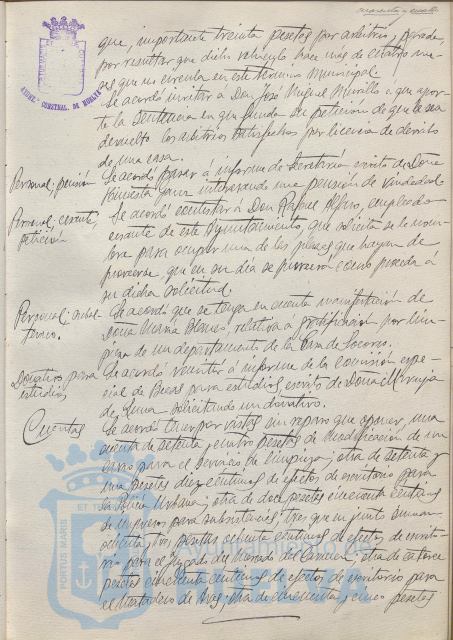 que, importante treinta pesetas por arbitrio, parado,
por resultar que dicho vehiculo hace más de cuatro me-
ses que no circula en este término municipal.
Se acordó invitar a Don José Miguel Murillo a que apor-
te la sentencia en que funda su petición de que le sea
devuelto los arbitrios satisfechos por licencia de derribo
de una casa.
Personal; pensión
Se acordó pasar á informe de Secretaría escrito de Dona
interesando una pensión de viudedad
Personal, cesante, petición
Se acordó contestar á Don Rafael Alfaro, empleado
cesante de este Ayuntamiento, que solicita se le nom-
bre para ocupar una de las plazas que hayan de
proveerse, que en su día se proveerá como proceda á
su dicha solicitud.
Personal;
Se acordó que se tenga en cuenta manifestación de
Dona Maria Blanco, relativa á gratificación por lim-
pieza de un departamento de la Casa de Socorro.
Donativo para estudios
Se acordó remitir á informe de la Comisión espe-
cial de Becas para estudios escrito de Dona
de solicitando un donativo.
Cuentas
Se acordó traer por vistas sin reparo que oponer, una
cuenta de setenta y cuatro pesetas de reedificación de un
carro para el servicio de limpieza; otra de setenta y
una pesetas diez centimos de efectos de escritorio para
la Policia Urbana; otra de doce pesetas cincuenta centimos
de impresos para subsistencias, tres que en junto suman
ochenta y tres pesetas ochenta centimos de efectos de escrito-
rio para el Juzgado del Mercado del Carmen; otra de catorce
pesetas cincuenta centimos de efectos de escritorio para
el Matadero de Aves; otra de cincuenta y cinco pesetas
AYUNT. CONSTNAL. DE HUELVA
PORTUS MARIS